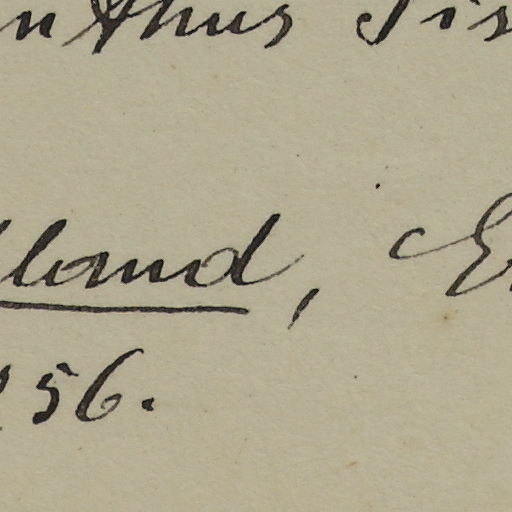 nthus Tis
land, E
856.